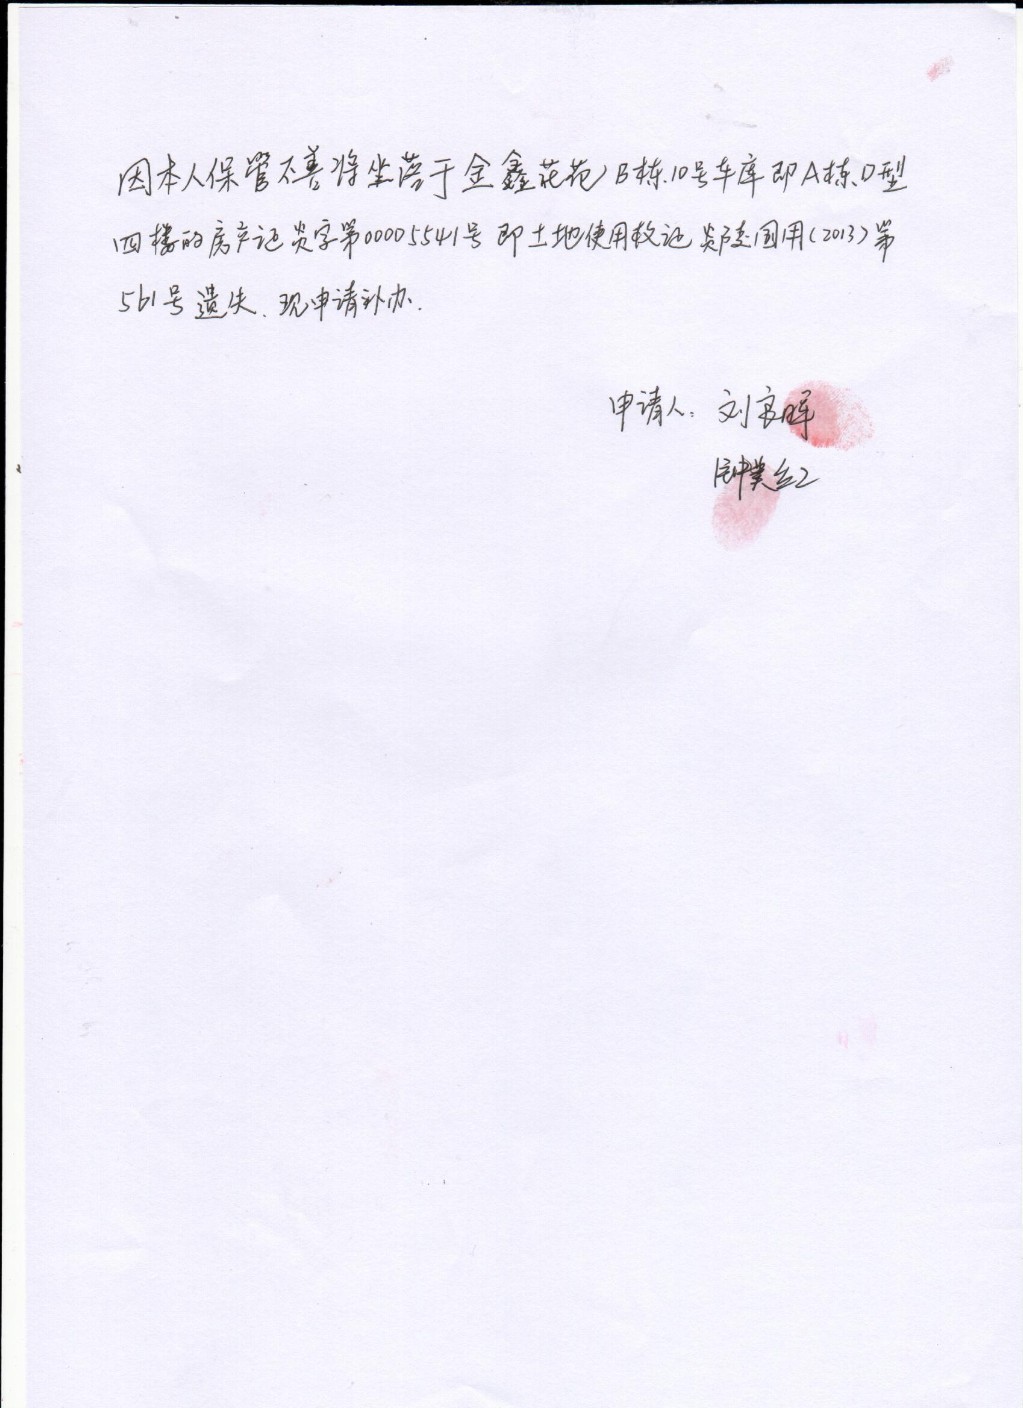 因本人保管不善将坐落于金鑫花苑B栋10号车库即A栋D型
四楼的房产证炎字第00005541号即土地使用权证炎陵国用(2013)第
561号遗失、现申请补办.
申请人: 刘良晖
钟美红